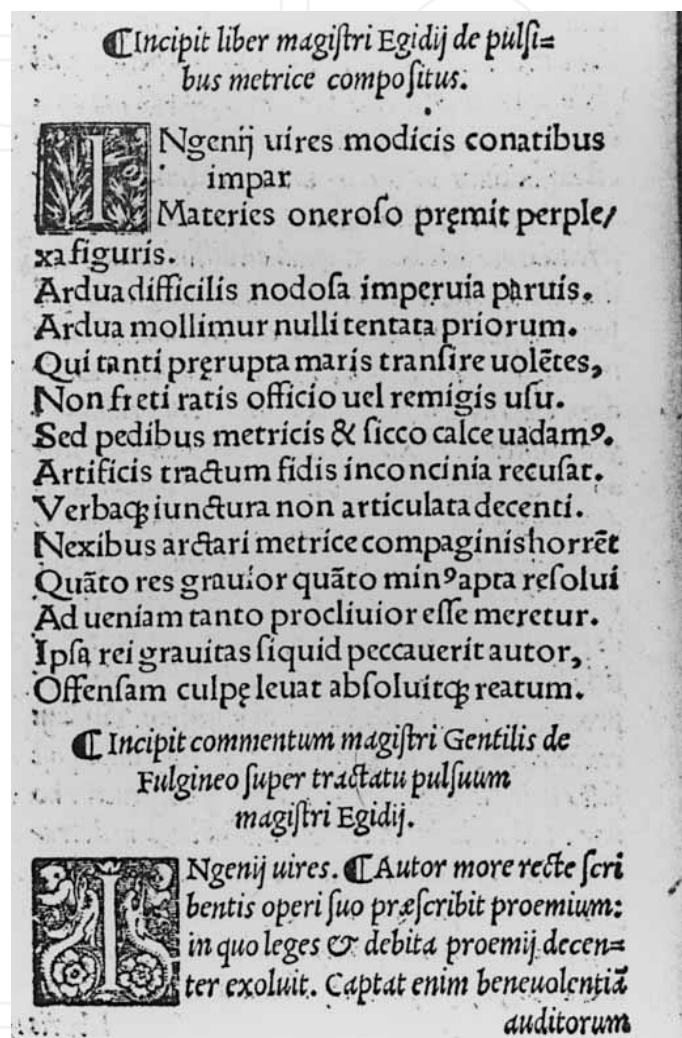 ¶Incipit liber magiſtri Egidij de pulſi=
bus metrice compoſitus.
INgenij uires modicis conatibus
impar
Materies oneroſo pręmit perple/
xa figuris.
Ardua difficilis nodoſa imperuia paruis.
Ardua mollimur nulli tentata priorum.
Qui tanti pręrupta maris tranſire uolētes,
Non freti ratis officio uel remigis uſu.
Sed pedibus metricis & ſicco calce uadamꝰ.
Artificis tractum fidis inconcinia recuſat.
Verbaqꝫ iunctura non articulata decenti.
Nexibus arctari metrice compaginis horrēt
Quāto res grauior quāto minꝰ apta reſolui
Ad ueniam tanto procliuior eſſe meretur.
Ipſa rei grauitas ſiquid peccauerit autor,
Offenſam culpę leuat abſoluitqꝫ reatum.
¶ Incipit commentum magiſtri Gentilis de
Fulgineo ſuper tractatu pulſuum
magiſtri Egidij.
INgenij uires. ¶Autor more recte ſcri
bentis operi ſuo præſcribit proemium:
in quo leges & debita proemij decen=
ter exoluit. Captat enim beneuolentiā
auditorum